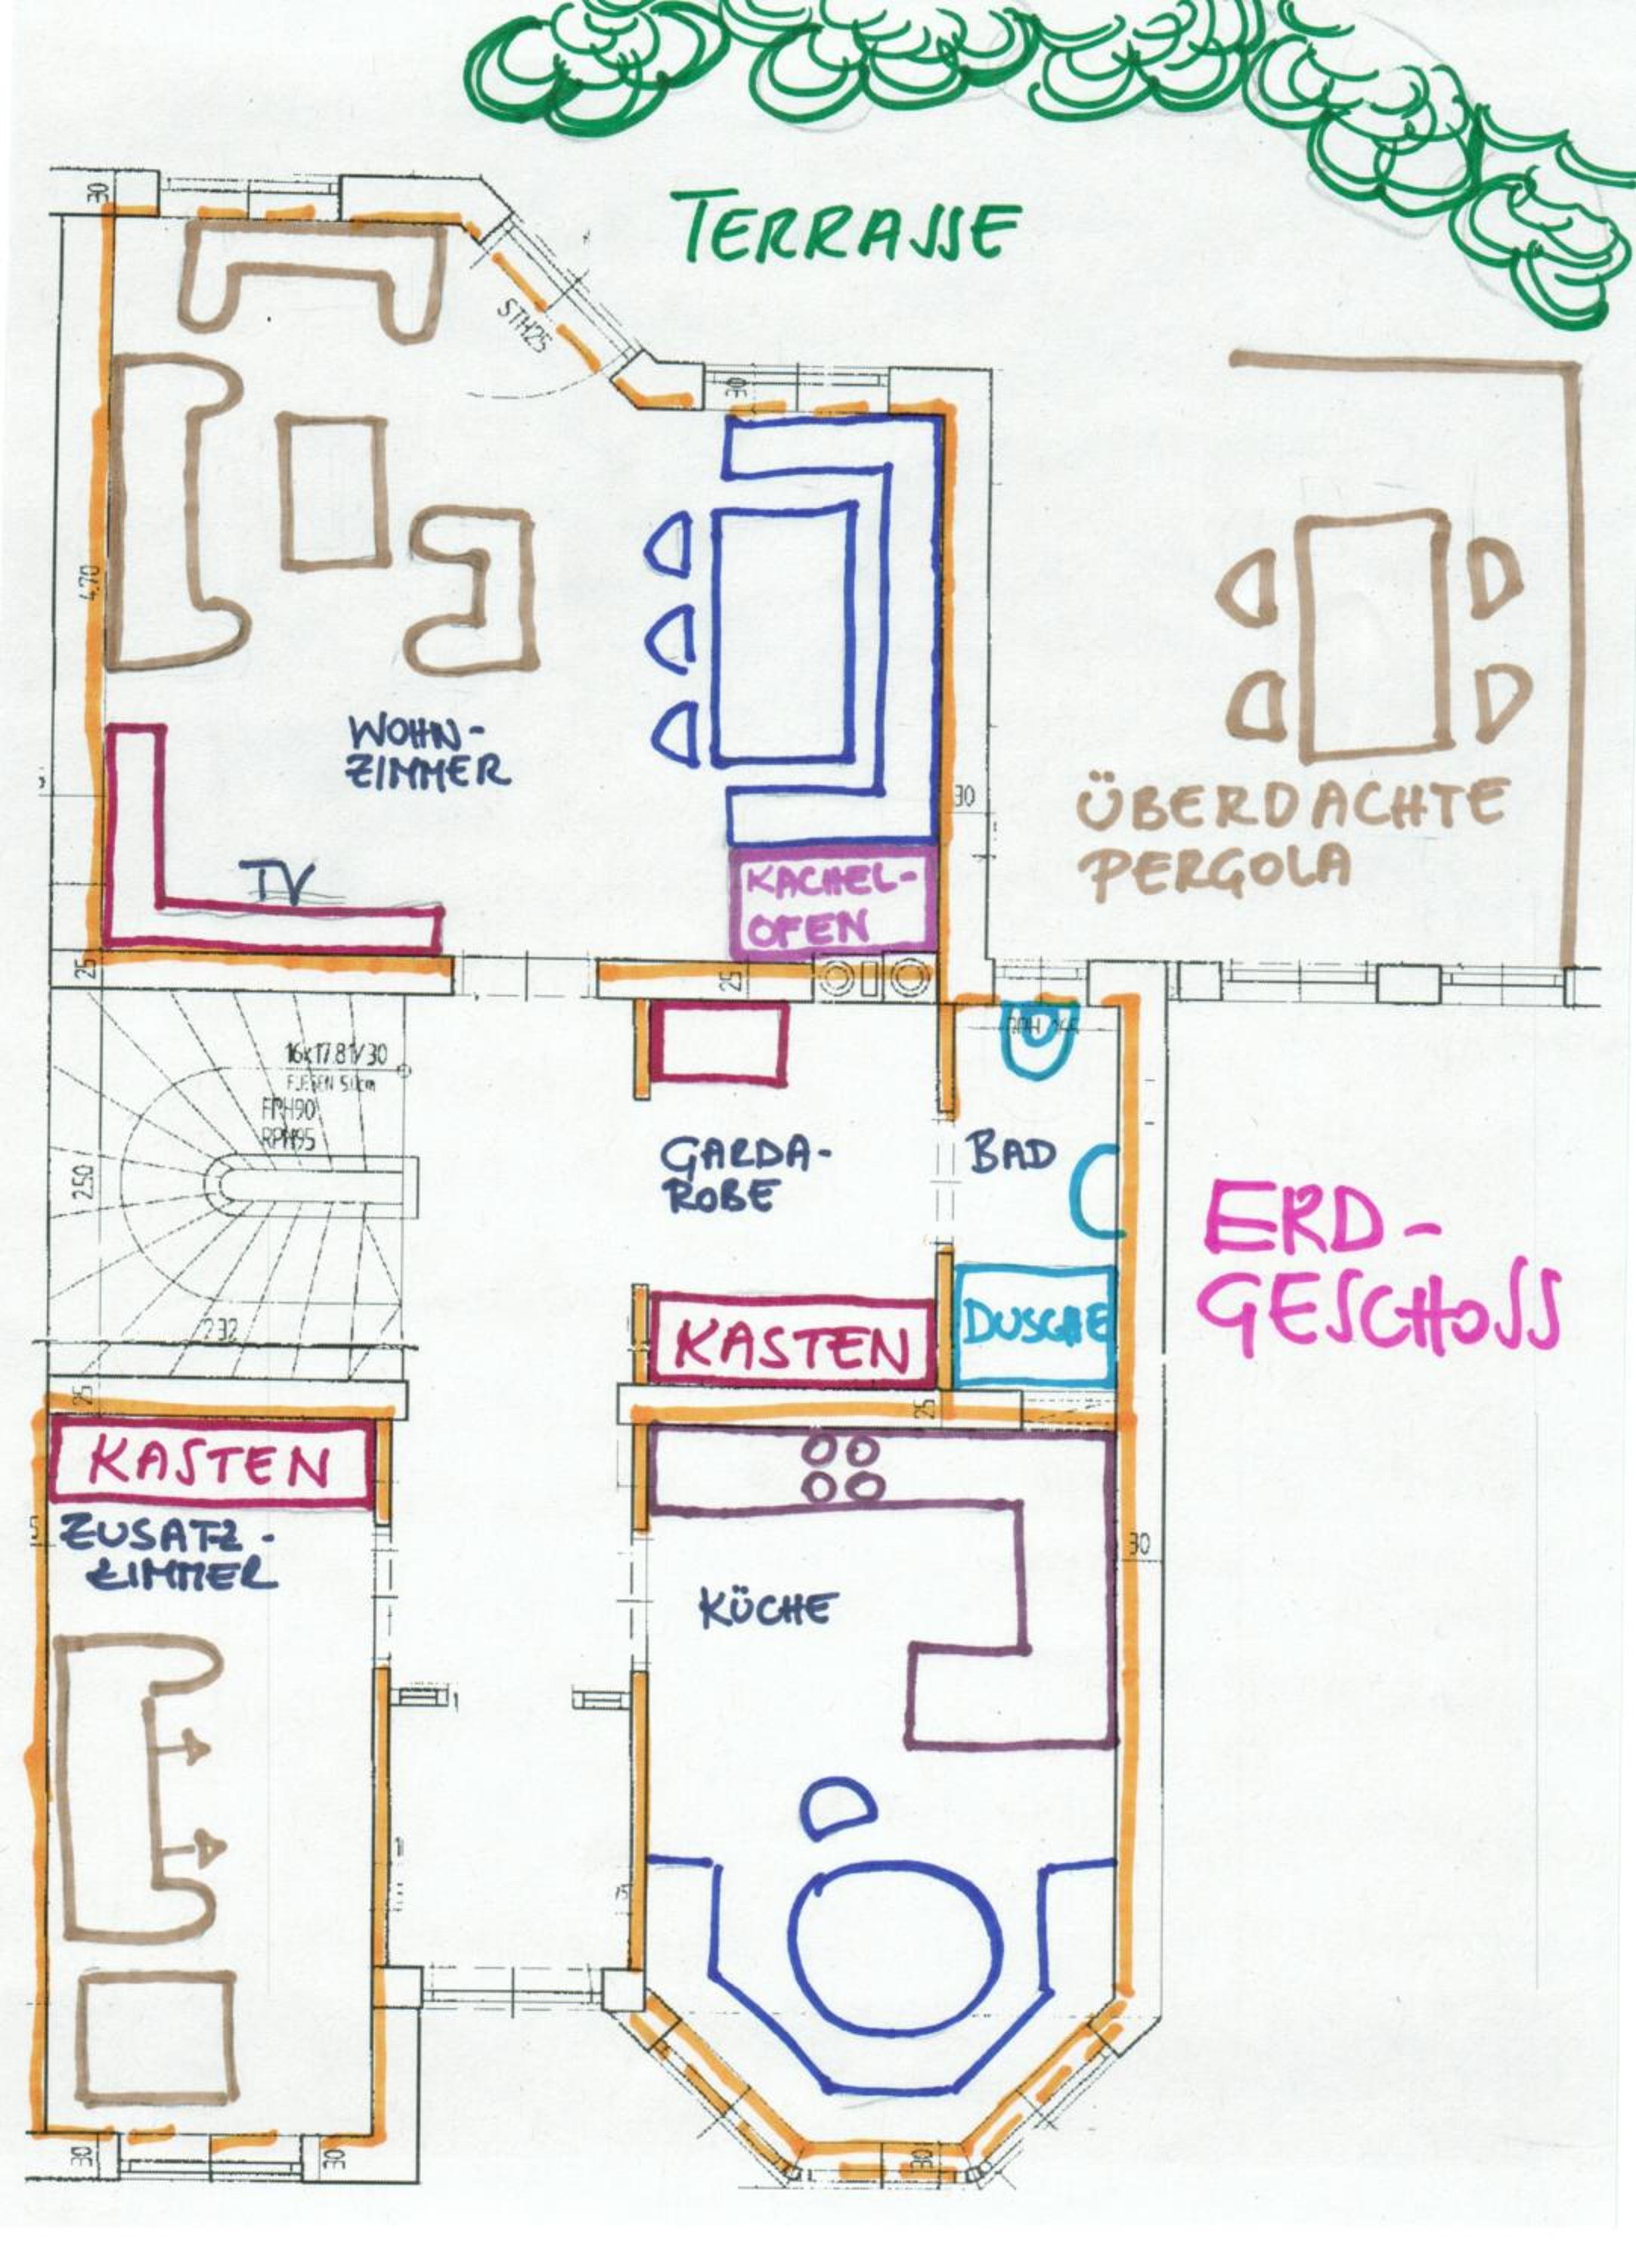 TERRASSE
30
STH25
30
4.70
WOHN-
ZIMMER
30
ÜBERDACHTE
PERGOLA
TV
KACHEL-
OFEN
25
25
16x17.81/30
FLIESEN 5.0cm
FPH90
RPH95
GARDA-
ROBE
BAD
2.50
ERD-
GESCHOSS
2.32
KASTEN
DUSCHE
25
25
KASTEN
ZUSATZ-
ZIMMER
30
KÜCHE
15
30
30
30